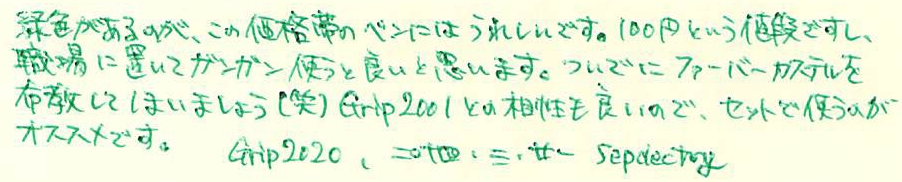 緑色があるのが、この価格帯のペンにはうれしいです。100円という値段ですし、
職場に置いてガンガン使うと良いと思います。ついでにファーバーカステルを
布教してしまいましょう(笑)Grip2001との相性も良いので、セットで使うのが
オススメです。 Grip2020、